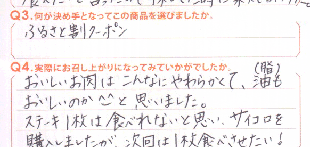 Q3.何が決め手となってこの商品を選びましたか。
ふるさと割クーポン
Q4.実際にお召し上がりになってみていかがでしたか。
(脂)
おいしいお肉はこんなにやわらかくて、油も
おいしいのか^^と思いました。
ステーキ1枚は食べれないと思い、サイコロを
購入しましたが、次回は1枚食べさせたい!